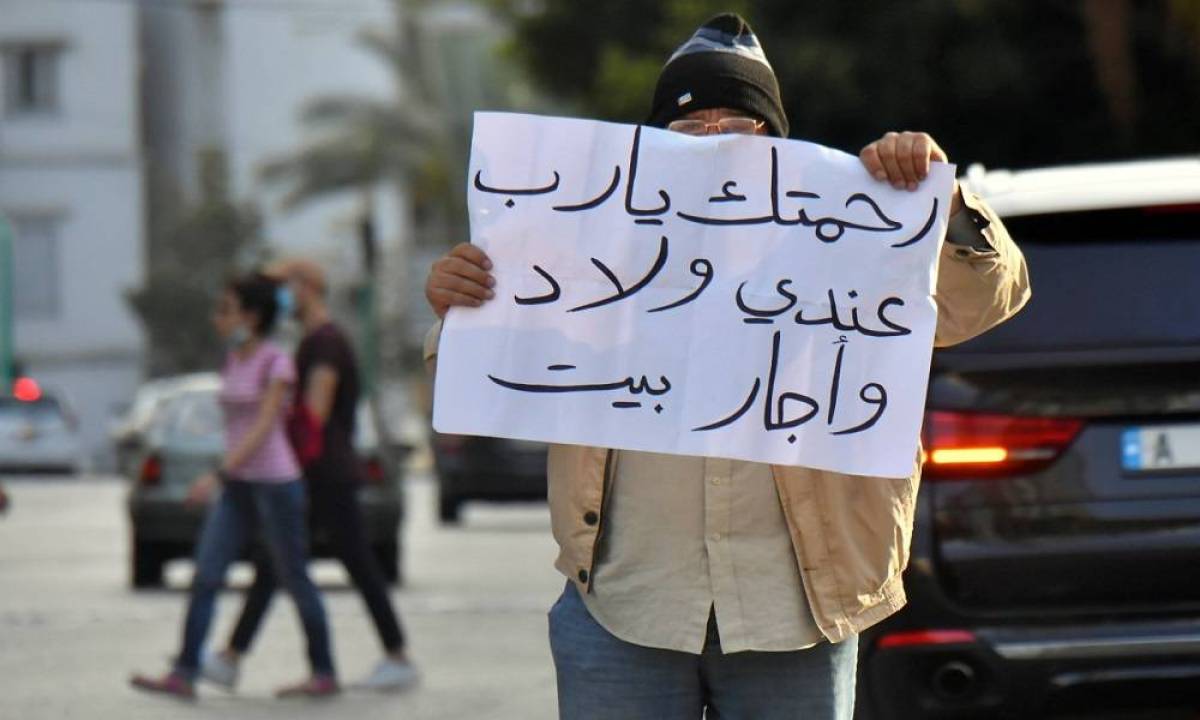 رحمتك يارب
عندي ولاد
وأجار بيت
A